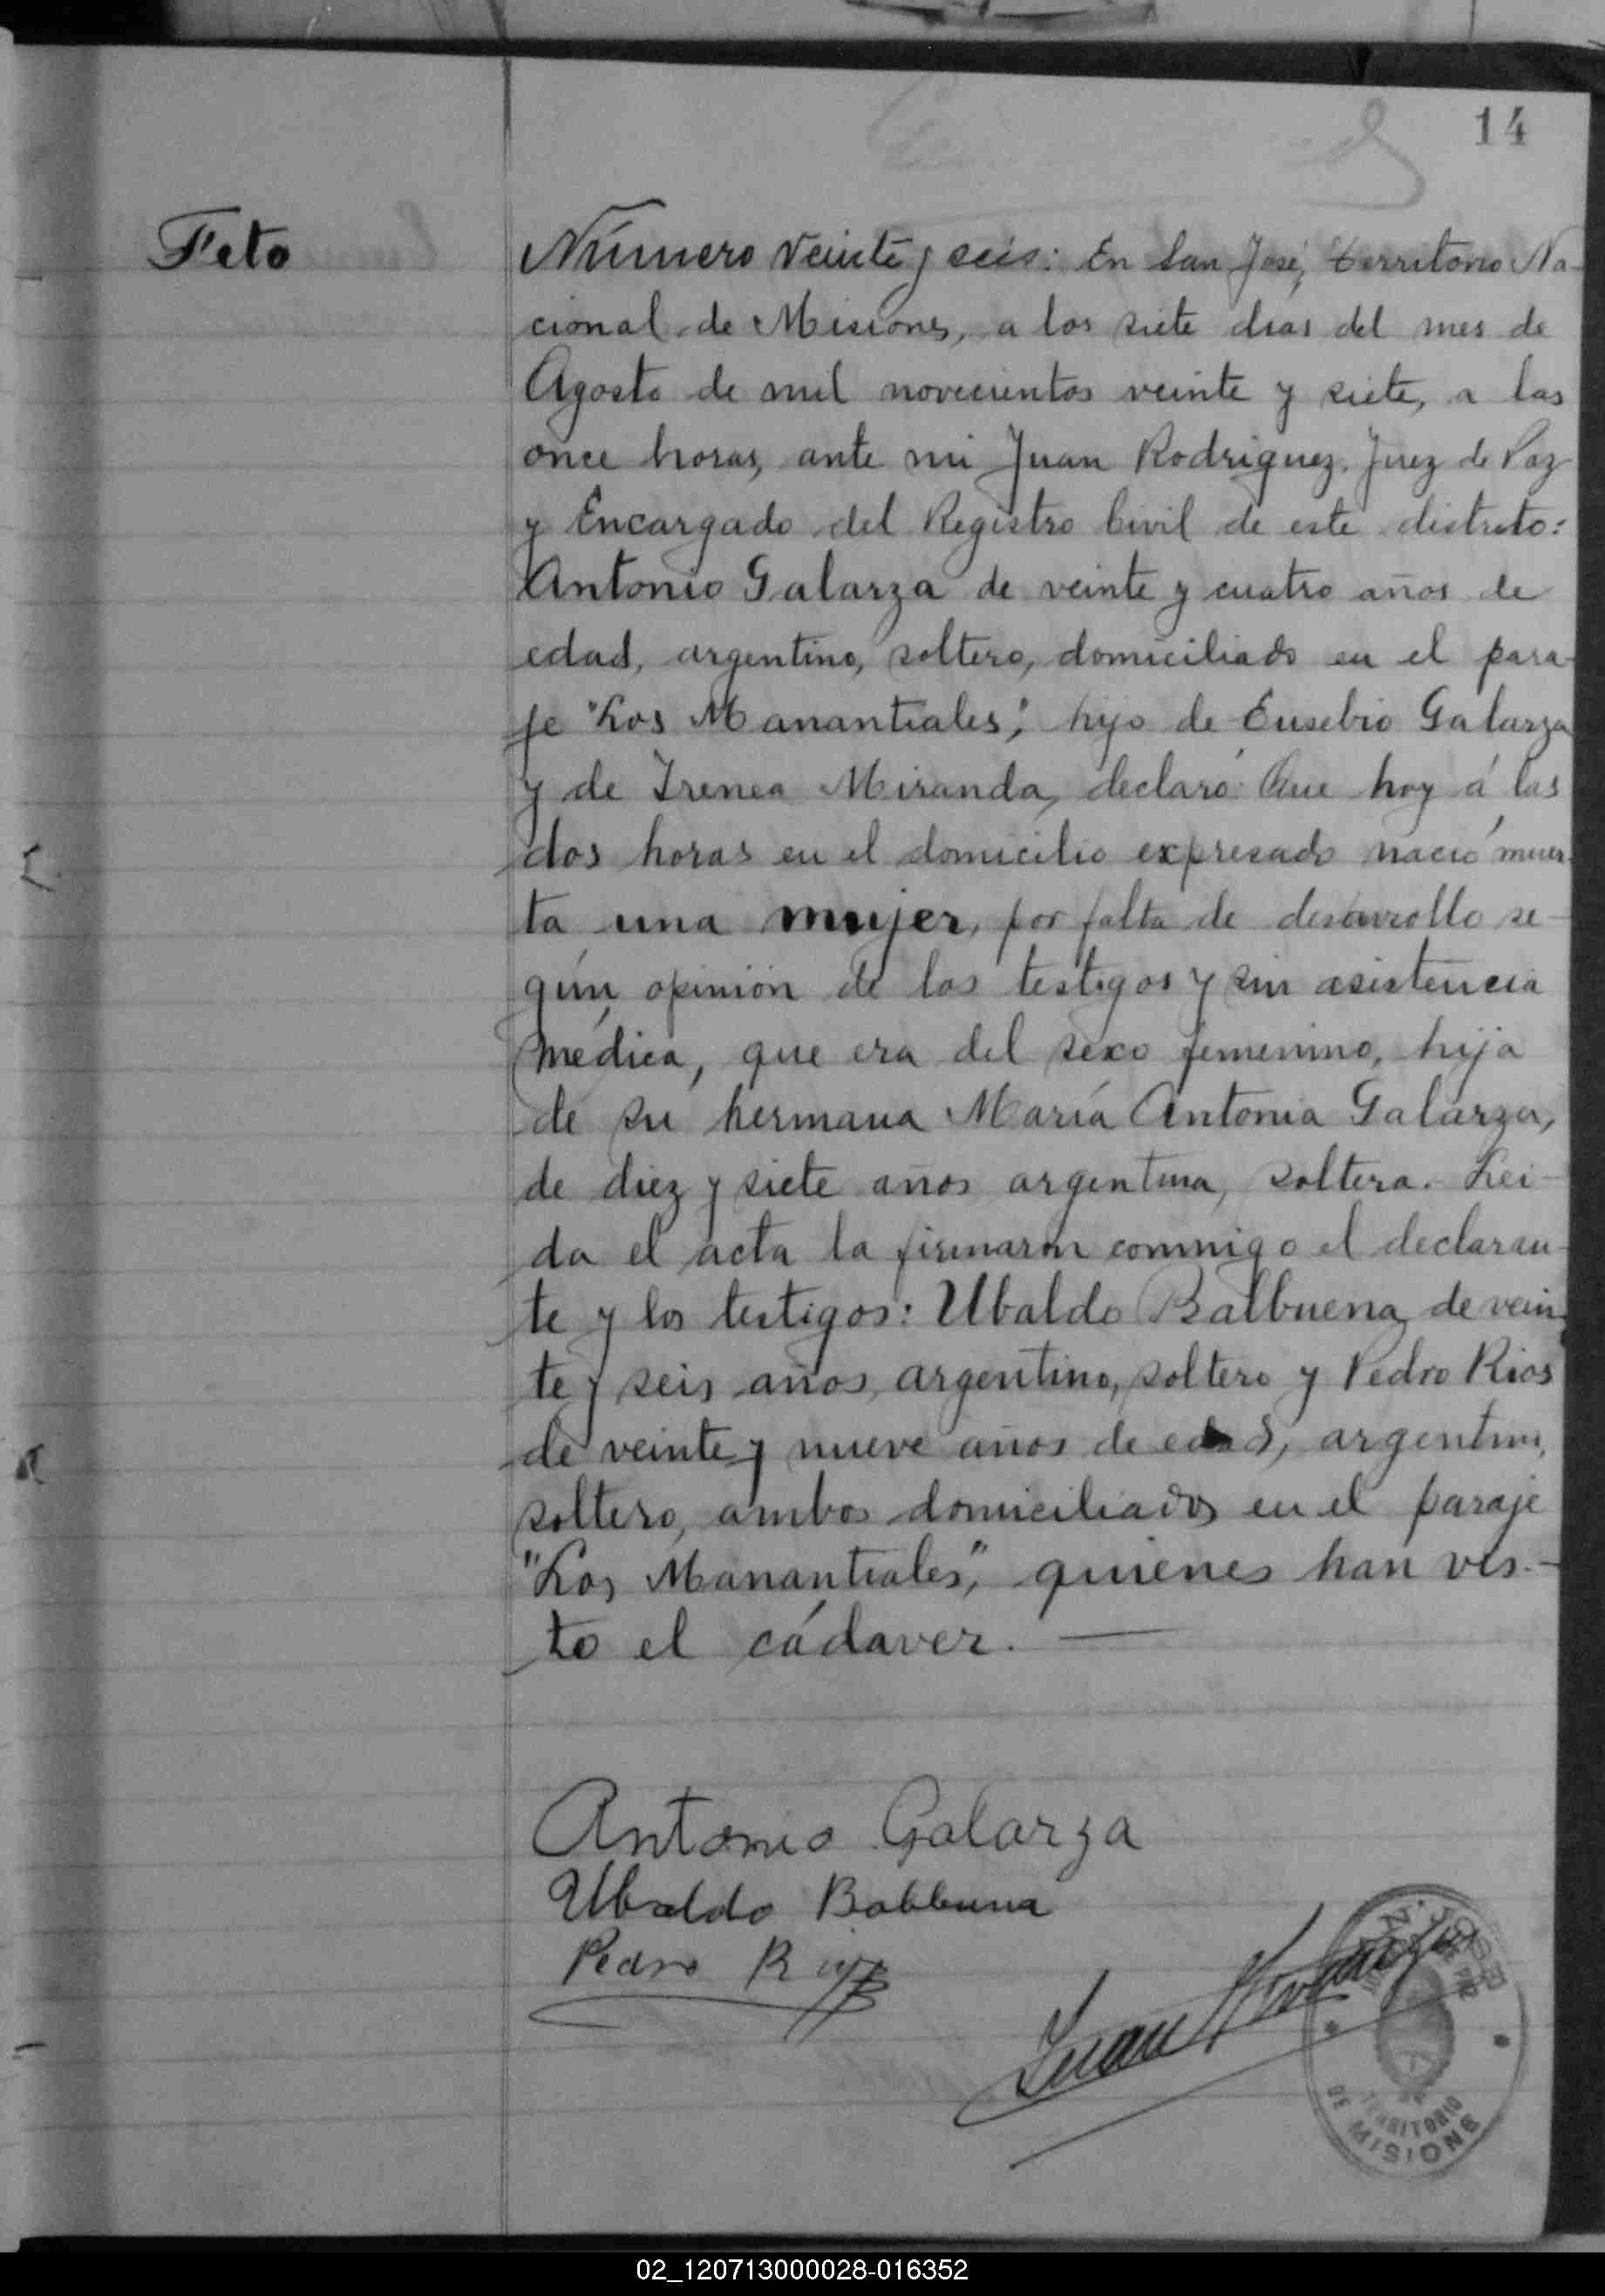 14
Feto
Número veinte y seis: En San José, Territorio Na-
cional de Misiones, a los siete días del mes de
Agosto de mil novecientos veinte y siete, a las
once horas, ante mi Juan Rodriguez, Juez de Paz
y Encargado del Registro Civil de este distrito:
Antonio Galarza de veinte y cuatro años de
edad, argentino, soltero, domiciliado en el para-
je "Los Manantiales", hijo de Eusebio Galarza
y de Irenea Miranda, declaró: Que hoy á las
dos horas en el domicilio expresado nació muer-
ta una mujer, por falta de desarrollo se-
gún opinión de los testigos y sin asistencia
médica, que era del sexo femenino, hija
de su hermana María Antonia Galarza,
de diez y siete años argentina, soltera. Lei-
da el acta la firmaron conmigo el declaran-
te y los testigos: Ubaldo Balbuena de vein-
te y seis años, argentino, soltero y Pedro Rios
de veinte y nueve años de edad, argentino,
soltero, ambos domiciliados en el paraje
"Los Manantiales", quienes han vis-
to el cádaver. —
Antonio Galarza
Ubaldo Balbuena
Pedro Rios
Juan Rodriguez
SAN JOSE
TERRITORIO
DE MISIONES
02_120713000028-016352